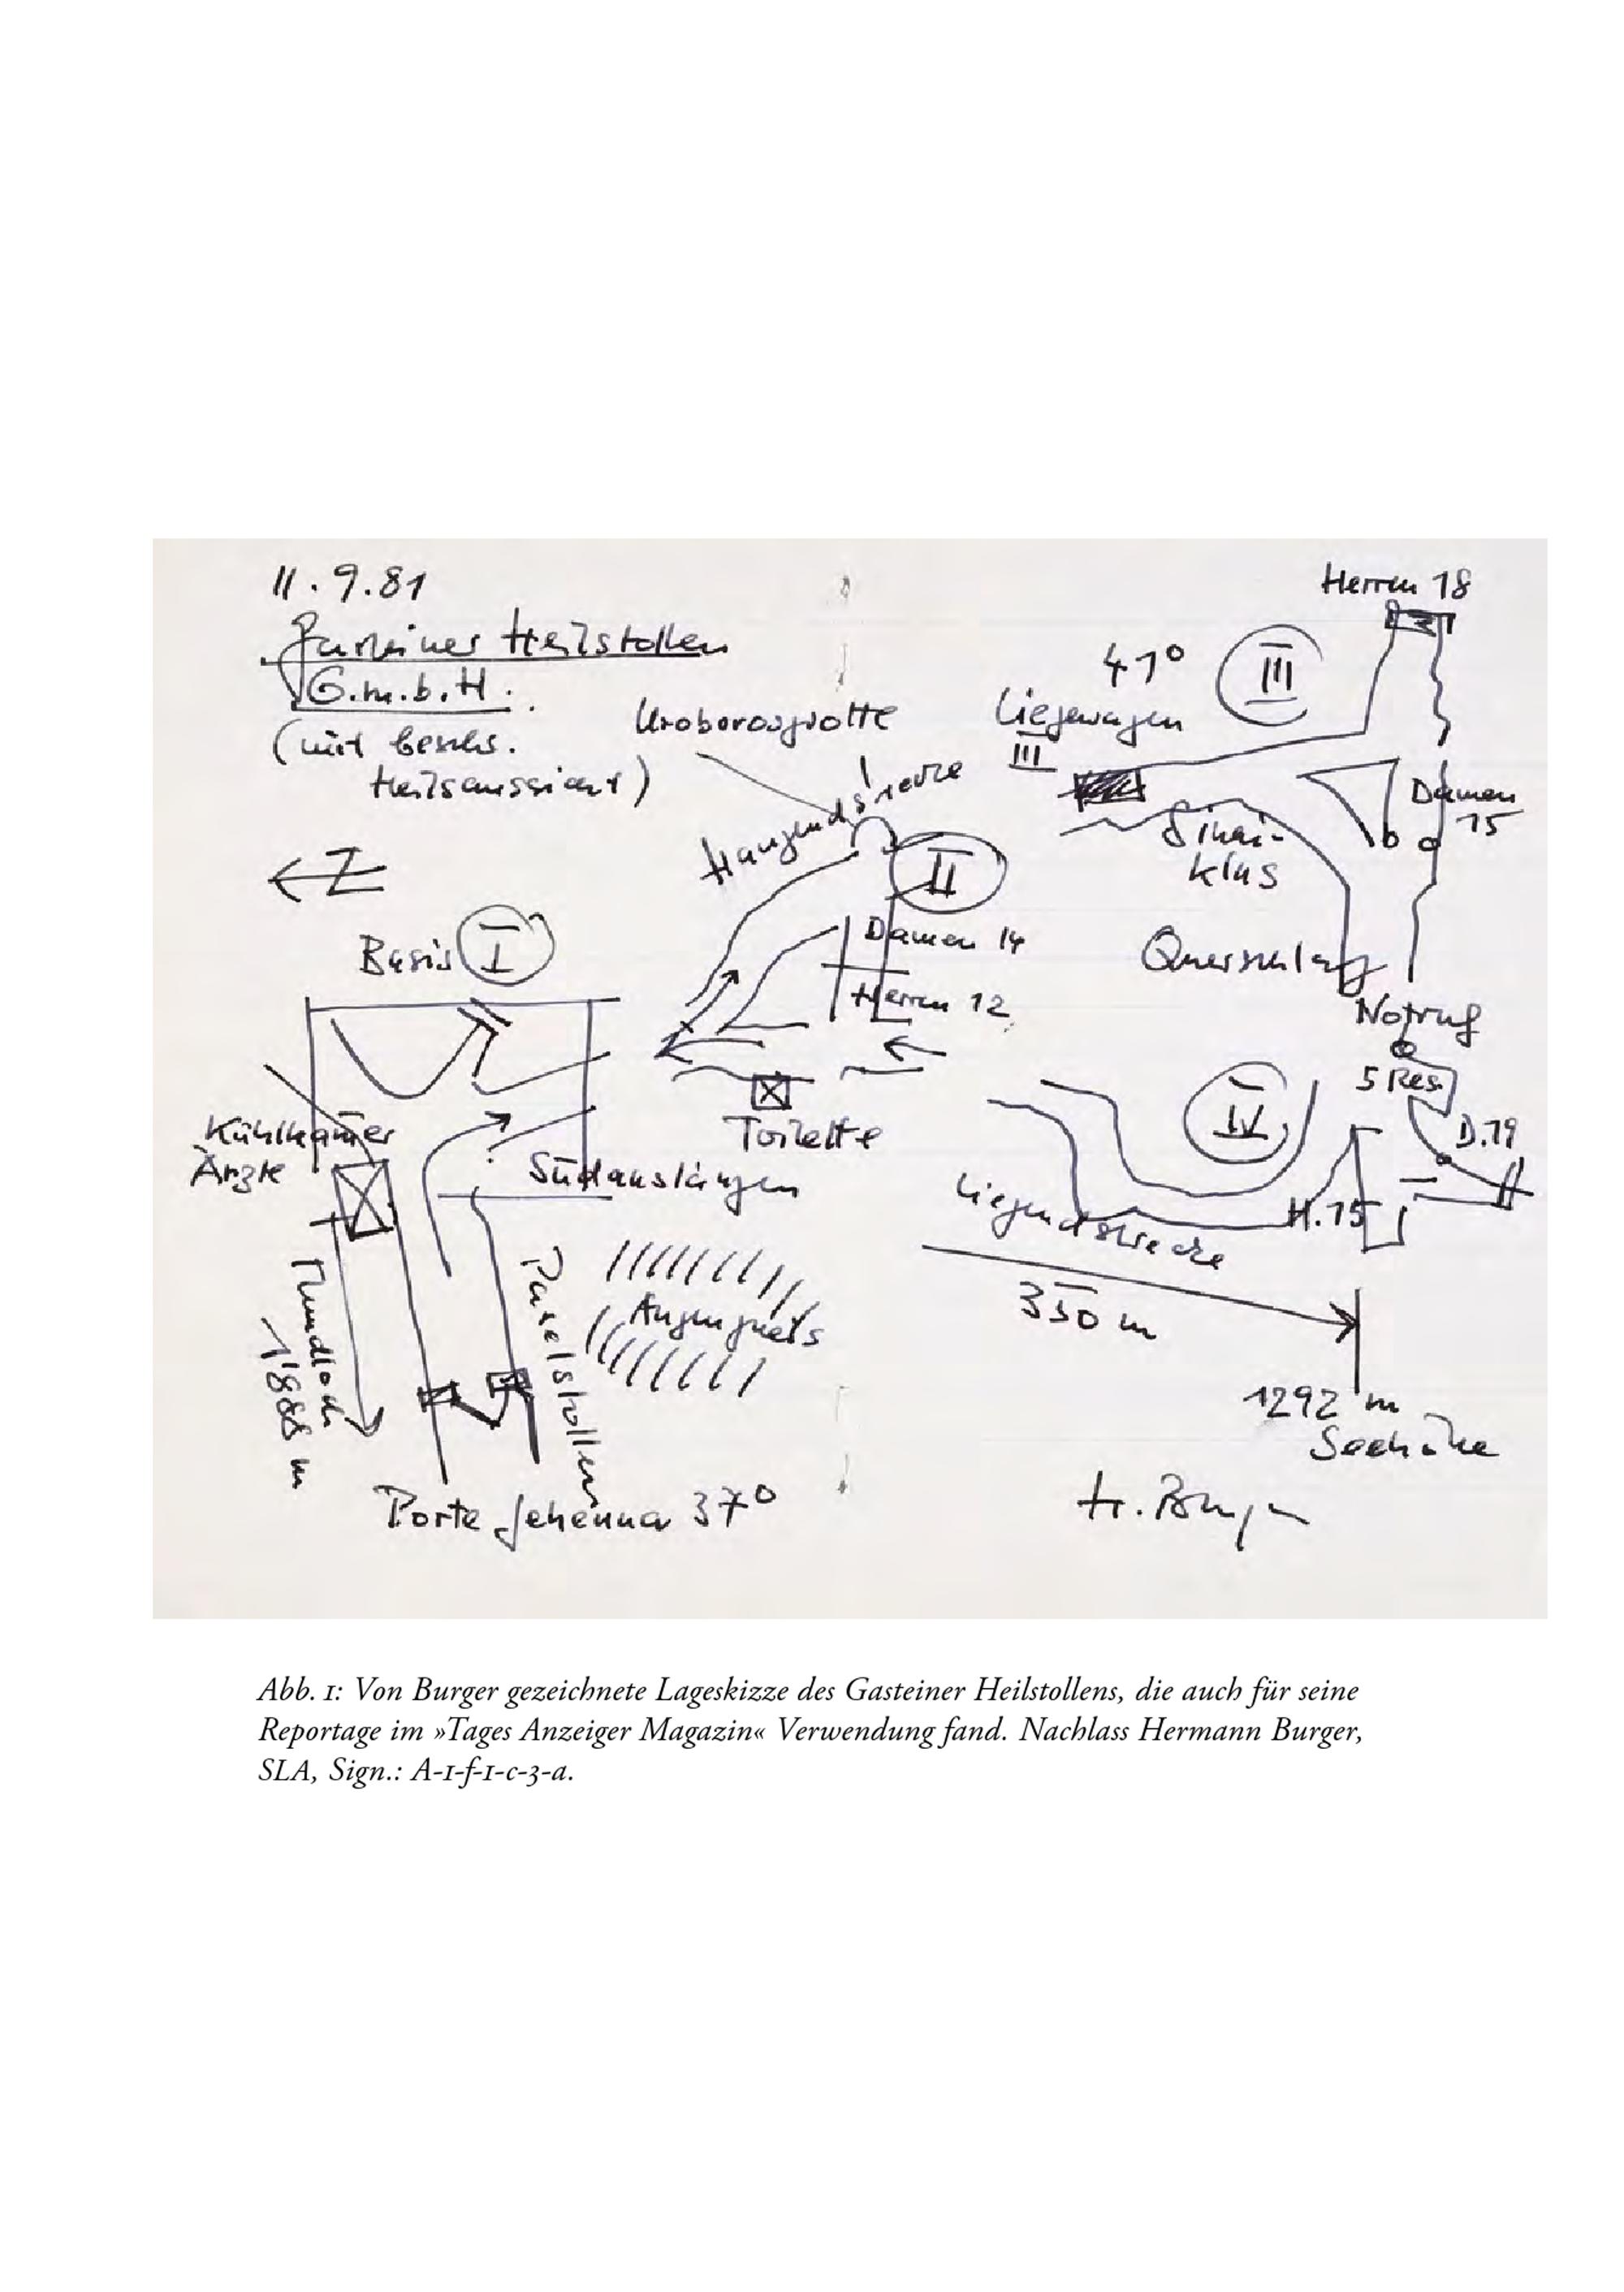 11.9.81
Gasteiner Heilstollen
G.m.b.H.
(mit beschr.
Heilsaussicht)
Uroborosgrotte
Hangendstrecke
Z
Basis I
II
Damen 14
Herren 12
Toilette
Kühlkammer
Ärzte
Südauslängen
Mundloch
1'888 m
Paselstollen
Augengneis
Porte Jehenna 37°
Herren 18
41° III
Liegewagen
III
Damen
15
Sinai-
klus
Querschlag
Notruf
5 Res.
IV
D.19
H.15
Liegendstrecke
350 m
1292 m
Seehöhe
H. Burger
Abb. 1: Von Burger gezeichnete Lageskizze des Gasteiner Heilstollens, die auch für seine
Reportage im »Tages Anzeiger Magazin« Verwendung fand. Nachlass Hermann Burger,
SLA, Sign.: A-1-f-1-c-3-a.